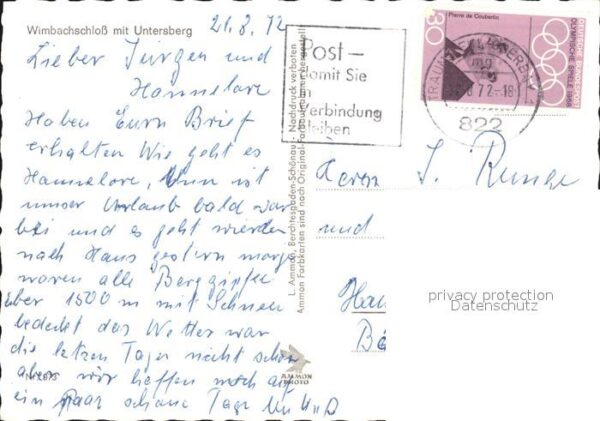 Wimbachschloß mit Untersberg
21.8.72
Lieber Jürgen und
Hannelore
Haben Eurn Brief
erhalten Wie geht es
Hannelore, Nun ist
unser Urlaub bald vor
bei und es geht wieder
nach Haus gestern morgen
waren alle Berggipfel
über 1500 m mit Schnee
bedeckt das Wetter war
die letzen Tage nicht schön
aber wir hoffen noch auf
ein paar schöne Tage
Post –
damit Sie
in
Verbindung
bleiben
Pierre de Coubertin
30
DEUTSCHE BUNDESPOST
OLYMPISCHE SPIELE 1968
72-18
822
L. Ammon, Berchtesgaden-Schönau · Nachdruck verboten
Ammon Farbkarten sind nach Original-Farbaufnahmen hergestellt
AMMON
PHOTO
Herrn J. Runge
und
Han
privacy protection
Datenschutz